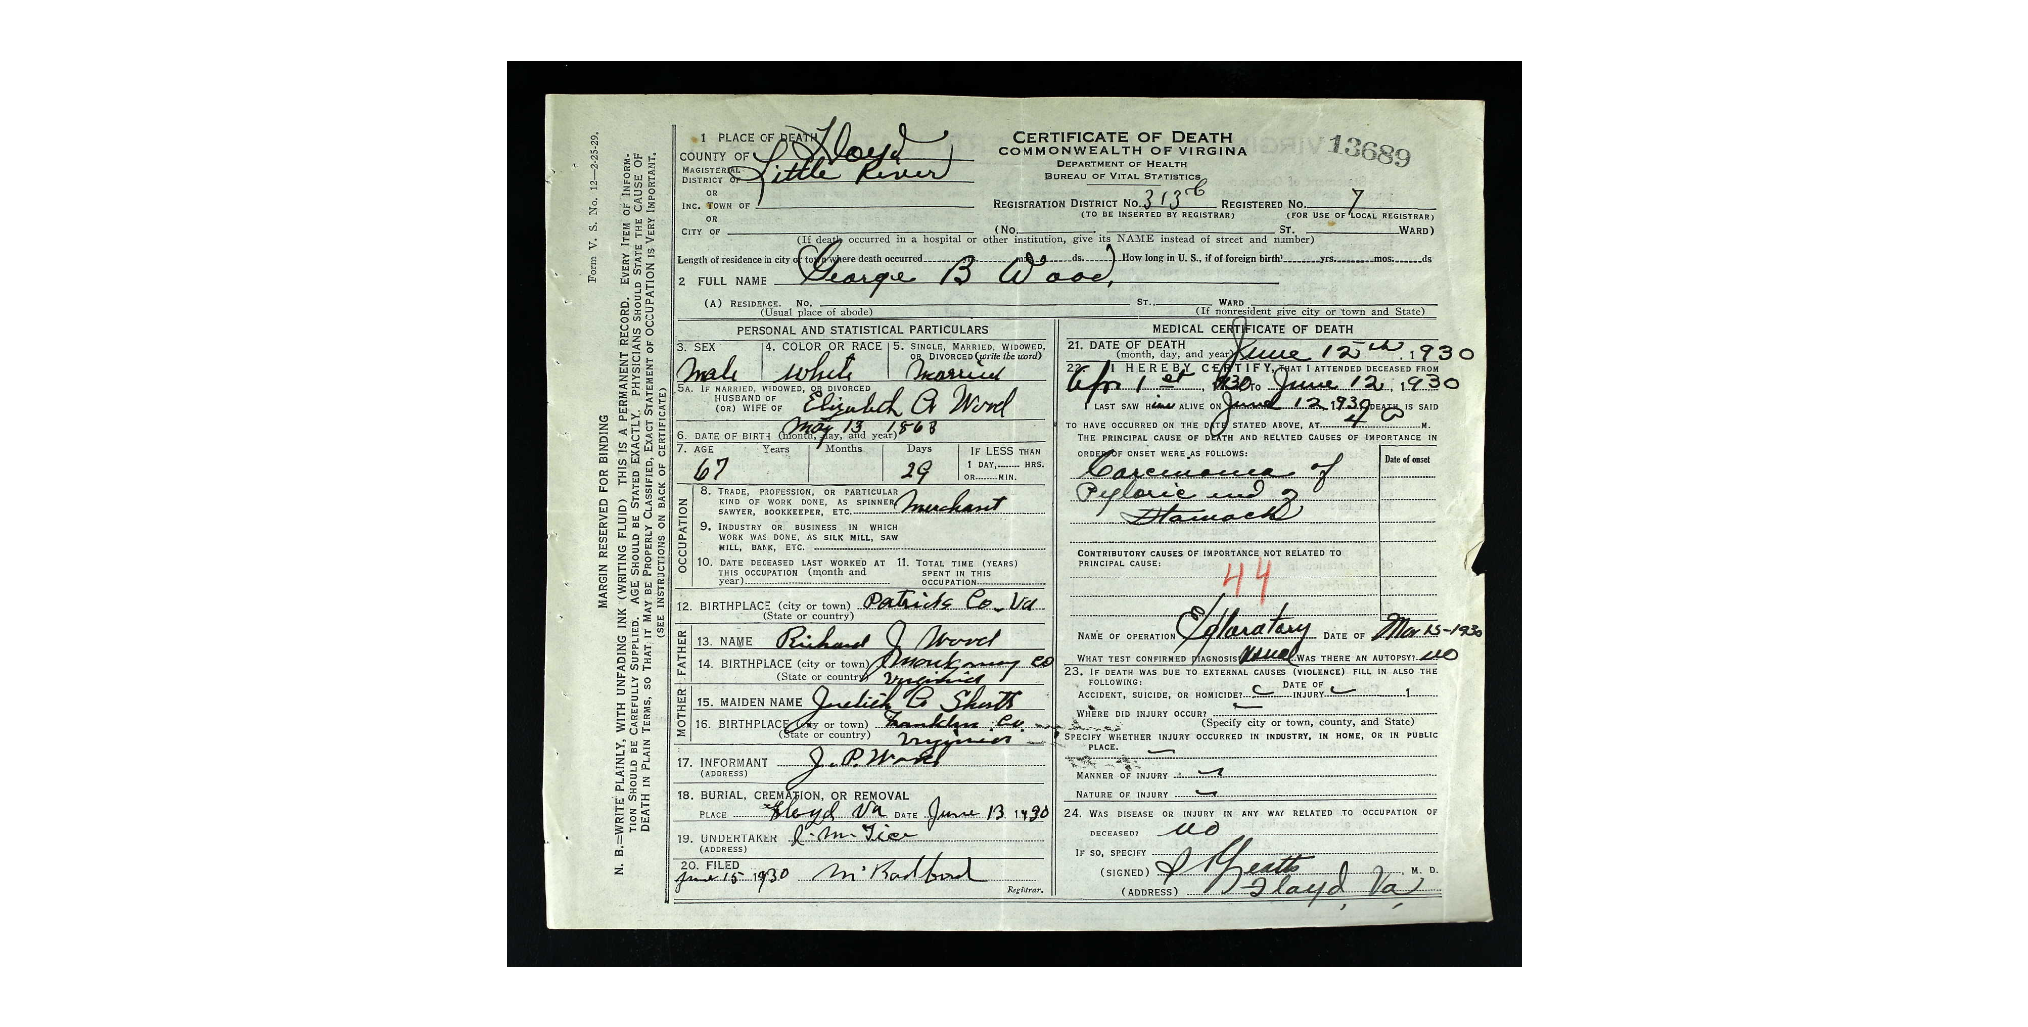 Form V. S. No. 12—2-25-29.
MARGIN RESERVED FOR BINDING
N. B.—WRITE PLAINLY, WITH UNFADING INK (WRITING FLUID) THIS IS A PERMANENT RECORD. EVERY ITEM OF INFORM-
TION SHOULD BE CAREFULLY SUPPLIED. AGE SHOULD BE STATED EXACTLY. PHYSICIANS SHOULD STATE THE CAUSE OF
DEATH IN PLAIN TERMS, SO THAT IT MAY BE PROPERLY CLASSIFIED, EXACT STATEMENT OF OCCUPATION IS VERY IMPORTANT.
(SEE INSTRUCTIONS ON BACK OF CERTIFICATE)
1 PLACE OF DEATH
COUNTY OF Floyd
MAGISTERIAL DISTRICT OF Little River
OR
INC. TOWN OF
OR
CITY OF
CERTIFICATE OF DEATH
COMMONWEALTH OF VIRGINIA
DEPARTMENT OF HEALTH
BUREAU OF VITAL STATISTICS
13689
REGISTRATION DISTRICT NO. 313 REGISTERED NO. 7
(TO BE INSERTED BY REGISTRAR) (FOR USE OF LOCAL REGISTRAR)
(No. ST. WARD)
(If death occurred in a hospital or other institution, give its NAME instead of street and number)
Length of residence in city or town where death occurred yrs. mos. ds. How long in U. S., if of foreign birth? yrs. mos. ds
2 FULL NAME George B Wood
(A) RESIDENCE. NO. ST. WARD
(Usual place of abode) (If nonresident give city or town and State)
PERSONAL AND STATISTICAL PARTICULARS
3. SEX 4. COLOR OR RACE 5. SINGLE, MARRIED, WIDOWED,
OR DIVORCED (write the word)
Male White Married
5A. IF MARRIED, WIDOWED, OR DIVORCED
HUSBAND OF
(OR) WIFE OF Elizabeth A Wood
6. DATE OF BIRTH (month, day, and year) May 13 1863
7. AGE Years Months Days IF LESS THAN
1 DAY, HRS.
OR MIN.
67 29
OCCUPATION
8. TRADE, PROFESSION, OR PARTICULAR
KIND OF WORK DONE, AS SPINNER,
SAWYER, BOOKKEEPER, ETC. Merchant
9. INDUSTRY OR BUSINESS IN WHICH
WORK WAS DONE, AS SILK MILL, SAW
MILL, BANK, ETC.
10. DATE DECEASED LAST WORKED AT
THIS OCCUPATION (month and
year)
11. TOTAL TIME (YEARS)
SPENT IN THIS
OCCUPATION
12. BIRTHPLACE (city or town) Patrick Co. Va
(State or country)
FATHER
13. NAME Richard J Wood
14. BIRTHPLACE (city or town) Montgomery Co
(State or country) Virginia
MOTHER
15. MAIDEN NAME Judith C Shorts
16. BIRTHPLACE (city or town) Franklin Co.
(State or country) Virginia
17. INFORMANT J. P. Wood
(ADDRESS)
18. BURIAL, CREMATION, OR REMOVAL
PLACE Floyd Va DATE June 13 1930
19. UNDERTAKER
(ADDRESS)
20. FILED
June 15 1930
Registrar.
MEDICAL CERTIFICATE OF DEATH
21. DATE OF DEATH
(month, day, and year) June 12th, 1930
22. I HEREBY CERTIFY, THAT I ATTENDED DECEASED FROM
Apr 1st, 1930 TO June 12, 1930
I LAST SAW Him ALIVE ON June 12 1930 DEATH IS SAID
TO HAVE OCCURRED ON THE DATE STATED ABOVE, AT M.
THE PRINCIPAL CAUSE OF DEATH AND RELATED CAUSES OF IMPORTANCE IN
ORDER OF ONSET WERE AS FOLLOWS:
Date of onset
Carcinoma of
Pyloric end of
Stomach
CONTRIBUTORY CAUSES OF IMPORTANCE NOT RELATED TO
PRINCIPAL CAUSE:
44
NAME OF OPERATION Exploratory DATE OF Mar 15-1930
WHAT TEST CONFIRMED DIAGNOSIS? usual WAS THERE AN AUTOPSY? no
23. IF DEATH WAS DUE TO EXTERNAL CAUSES (VIOLENCE) FILL IN ALSO THE
FOLLOWING:
ACCIDENT, SUICIDE, OR HOMICIDE? DATE OF INJURY 1
WHERE DID INJURY OCCUR?
(Specify city or town, county, and State)
SPECIFY WHETHER INJURY OCCURRED IN INDUSTRY, IN HOME, OR IN PUBLIC
PLACE.
MANNER OF INJURY
NATURE OF INJURY
24. WAS DISEASE OR INJURY IN ANY WAY RELATED TO OCCUPATION OF
DECEASED? no
IF SO, SPECIFY
(SIGNED) , M. D.
(ADDRESS) Floyd, Va,